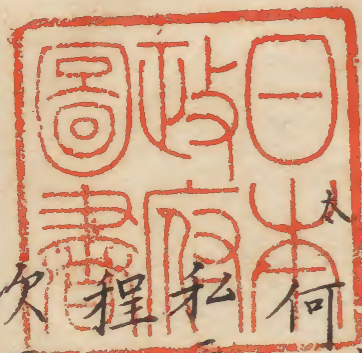 日本
政府
圖書
太
何
私
程